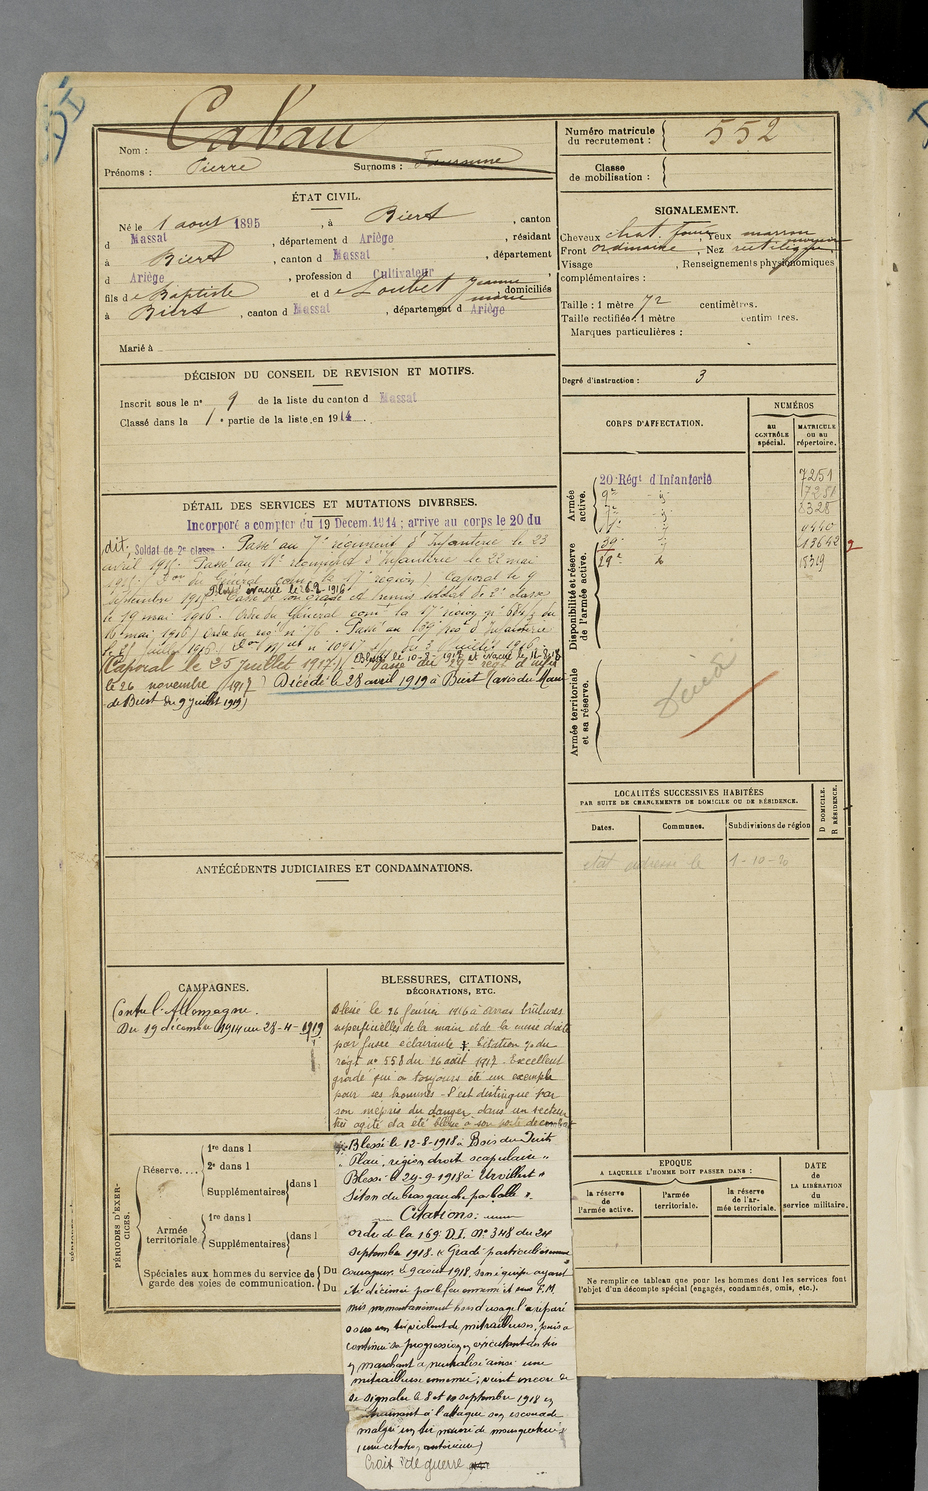 Nom : Cabau
Prénoms : Pierre Surnoms :
Numéro matricule du recrutement : 552
Classe de mobilisation :
ÉTAT CIVIL.
Né le 1 aout 1895, à Biert, canton
d Massat, département d Ariège, résidant
à Biert, canton d Massat, département
d Ariège, profession d Cultivateur,
fils de Baptiste et de Loubet Jeanne marie, domiciliés
à Biert, canton d Massat, département d Ariège
Marié à
SIGNALEMENT.
Cheveux chat. foncé, Yeux marron
Front ordinaire, Nez rectiligne
Visage , Renseignements physionomiques
complémentaires :
Taille : 1 mètre 72 centimètres.
Taille rectifiée : 1 mètre centimètres.
Marques particulières :
Degré d'instruction : 3
DÉCISION DU CONSEIL DE REVISION ET MOTIFS.
Inscrit sous le nº 9 de la liste du canton d Massat
Classé dans la 1e partie de la liste en 1914.
CORPS D'AFFECTATION.
NUMÉROS
au CONTRÔLE spécial.
MATRICULE OU AU répertoire.
Armée active.
20 Régt d'Infanterie 7251
9e 7251
7e 2328
11e
139e 13642
29e
Disponibilité et réserve de l'armée active.
Armée territoriale et sa réserve.
Décédé
DÉTAIL DES SERVICES ET MUTATIONS DIVERSES.
Incorporé a compter du 19 Decem. 1914 ; arrive au corps le 20 du
dit, Soldat de 2e classe. Passé au 7e régiment d'Infanterie le 23
avril 1915. Passé au 11e régiment d'Infanterie le 22 mai
1915. Don du Général comt la 17e région). Caporal le 9
septembre 1915. Cassé de son grade et remis soldat de 2e classe
le 19 mai 1916. Ordre du Général comt la 17e région
16 mai 1916) Ordre du régt nº 76. Passé au 139 Rég d'Infanterie
Caporal le 25 juillet 1917. Blessé le 10-8-1918 et évacué le 11-8-18. Passé au 29e régt d'infie
le 26 novembre 1917) Décédé le 28 avril 1919 à Biert (avis du Maire
de Biert du 9 juillet 1919)
LOCALITÉS SUCCESSIVES HABITÉES
PAR SUITE DE CHANGEMENTS DE DOMICILE OU DE RÉSIDENCE.
Dates. Communes. Subdivisions de région D DOMICILE. R RÉSIDENCE.
état adressé le 1-10-20
ANTÉCÉDENTS JUDICIAIRES ET CONDAMNATIONS.
CAMPAGNES.
Contre l'Allemagne.
Du 19 décembre 1914 au 28-4-1919
BLESSURES, CITATIONS,
DÉCORATIONS, ETC.
Blessé le 26 février 1916 à Arras brûlures
superficielles de la main et de la cuisse droite
par fusée éclairante. Citation du
régt nº 558 du 26 août 1917. Excellent
gradé qui a toujours été un exemple
pour ses hommes. S'est distingué par
son mépris du danger dans un secteur
très agité et a été blessé à son poste de combat
Blessé le 12-8-1918 à Bois du Puits
"Plaie, région droite scapulaire"
Blessé le 29-9-1918 à Urvillert
Séton du bras gauche par balle".
Citations :
ordre de la 169e D.I. Nº 348 du 24
septembre 1918. "Gradé particulièrement
courageux. Le 9 août 1918, son équipe ayant
été décimée par le feu ennemi et son F.M.
mis momentanément hors d'usage l'a réparé
sous un tir violent de mitrailleuses, puis a
continué sa progression en exécutant des tirs
en marchant a neutralisé ainsi une
mitrailleuse ennemie ; vient encore de
se signaler le 8 et 10 septembre 1918 en
entraînant à l'attaque son escouade
malgré un tir nourri de mousqueterie"
(une citation antérieure)
Croix de guerre
PÉRIODES D'EXERCICES.
Réserve.....
1re dans l
2e dans l
Supplémentaires dans l
Armée territoriale
1re dans l
Supplémentaires dans l
Spéciales aux hommes du service de garde des voies de communication. Du Du
EPOQUE
A LAQUELLE L'HOMME DOIT PASSER DANS :
la réserve de l'armée active.
l'armée territoriale.
la réserve de l'armée territoriale.
DATE de LA LIBÉRATION du service militaire.
Ne remplir ce tableau que pour les hommes dont les services font
l'objet d'un décompte spécial (engagés, condamnés, omis, etc.).